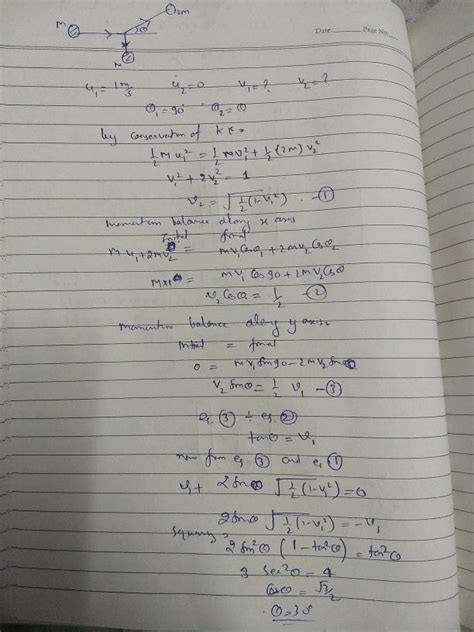 Date:______ Page No:____
M
2m
θ
M
u₁ = 1 m/s u₂ = 0 v₁ = ? v₂ = ?
θ₁ = 90° θ₂ = θ
by conservation of KE
1/2 M u₁² = 1/2 m v₁² + 1/2 (2m) v₂²
v₁² + 2v₂² = 1
v₂ = √(1/2 (1-v₁²)) - ①
momentum balance along x axis
Initial final
m u₁ + 2m = mv₁cosθ₁ + 2mv₂cosθ₂
m×1 = mv₁ cos90 + 2mv₂cosθ
v₂cosθ = 1/2 - ②
momentum balance along y axis
Initial = final
0 = mv₁sin90 - 2mv₂sinθ
v₂ sinθ = 1/2 v₁ - ③
eq. ③ ÷ eq. ②
tanθ = v₁
now from eq ③ and eq ①
v₁ + 2sinθ √(1/2 (1-v₁²)) = 0
2sinθ √(1/2 (1-v₁²)) = -v₁
squaring
2sin²θ (1 - tan²θ) = tan²θ
3 sec²θ = 4
cosθ = √3/2
θ = 30